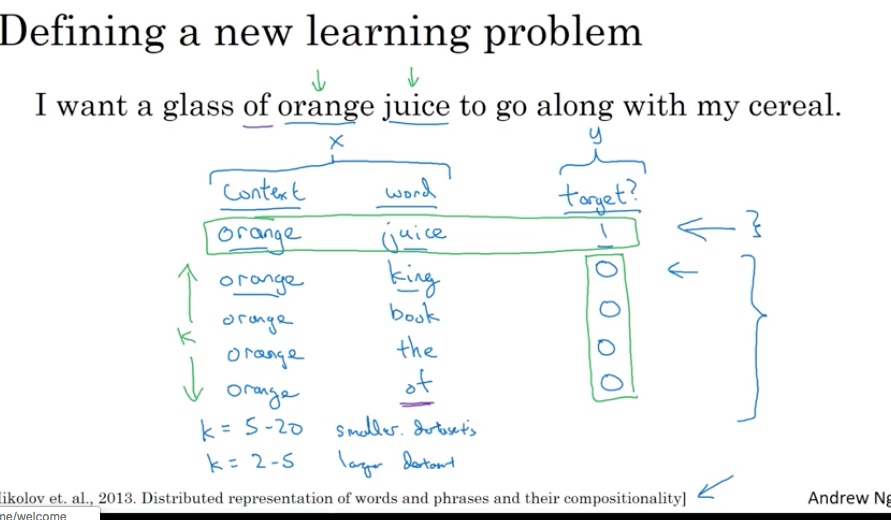 Defining a new learning problem
I want a glass of orange juice to go along with my cereal.
x y
context word target?
orange juice 1
orange king 0
orange book 0
orange the 0
orange of 0
k
k = 5-20 smaller datasets
k = 2-5 larger dataset
ikolov et. al., 2013. Distributed representation of words and phrases and their compositionality]
Andrew Ng
me/welcome